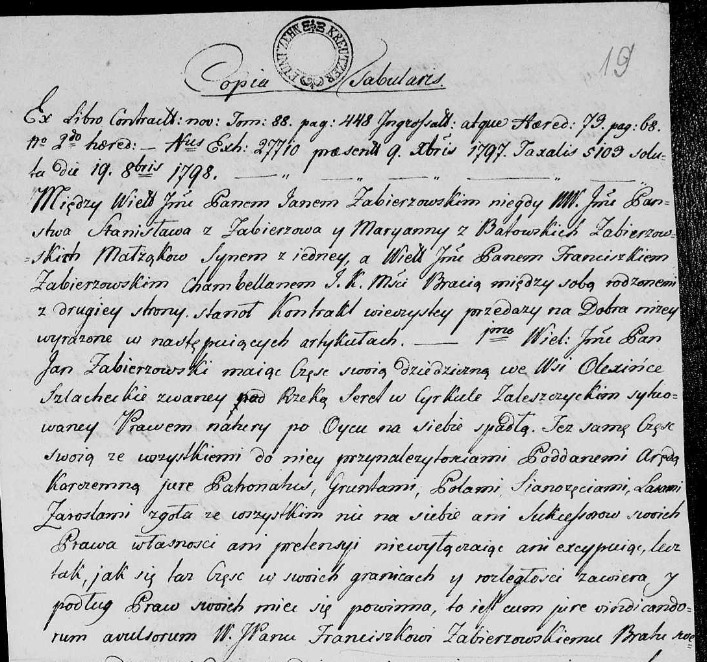 19
FUNFZEHN KREUTZER
Copia Tabularis.
Ex Libro Contractt: nov: Tom: 88. pag: 448 Ingrossatt: atque Hæred: 79. pag: 68.
nro 2do hæred: — Nrus Exh: 27710 præsentt 9. Xbris 1797. Taxalis 5103 solu-
ta die 19. 8bris 1798. — „ — „ — „ — „ —
Między Wielł Jmć Panem Janem Zabierzowskim niegdy WW. Jmć Pań-
stwa Stanisława z Zabierzowa y Maryanny z Batowskich Zabierzow-
-skich Małżąków Synem z iedney, a Wielł Jmć Panem Franciszkiem
Zabierzowskim Chambellanem J. K. Mści Bracią między sobą rodzonemi
z drugiey strony. stanoł Kontrakt wieczystey przedaży na Dobra niżey
wyrażone w następuiących artykułach. — jmo Wiel: Jmć Pan
Jan Zabierzowski maiąc Częsc swoią dziedziczną we Wsi Olexińce
Szlacheckie zwaney pod Rzeką Seret w Cyrkule Zaleszczyckim sytuo-
waney Prawem natury po Oycu na siebie spadłą. Tez samę Częsc
swoią ze wszystkiemi do niey przynależytosciami Poddanemi Arędą
Karczemną jure Patronatus, Gruntami, Polami, Sianożęciami, Lasami
Zaroslami zgoła ze wszystkim nic na siebie ani Sukcessorow swoich
Prawa własnosci ani pretensyi niewyłączaiąc ani excypuiąc, lecz
tak, jak się taz Częsc w swoich granicach y rozległości zawiera, y
podług Praw swoich miec się powinna, to iest cum jure vindicando-
rum avulsorum W. JPanu Franciszkowi Zabierzowskiemu Bratu swe